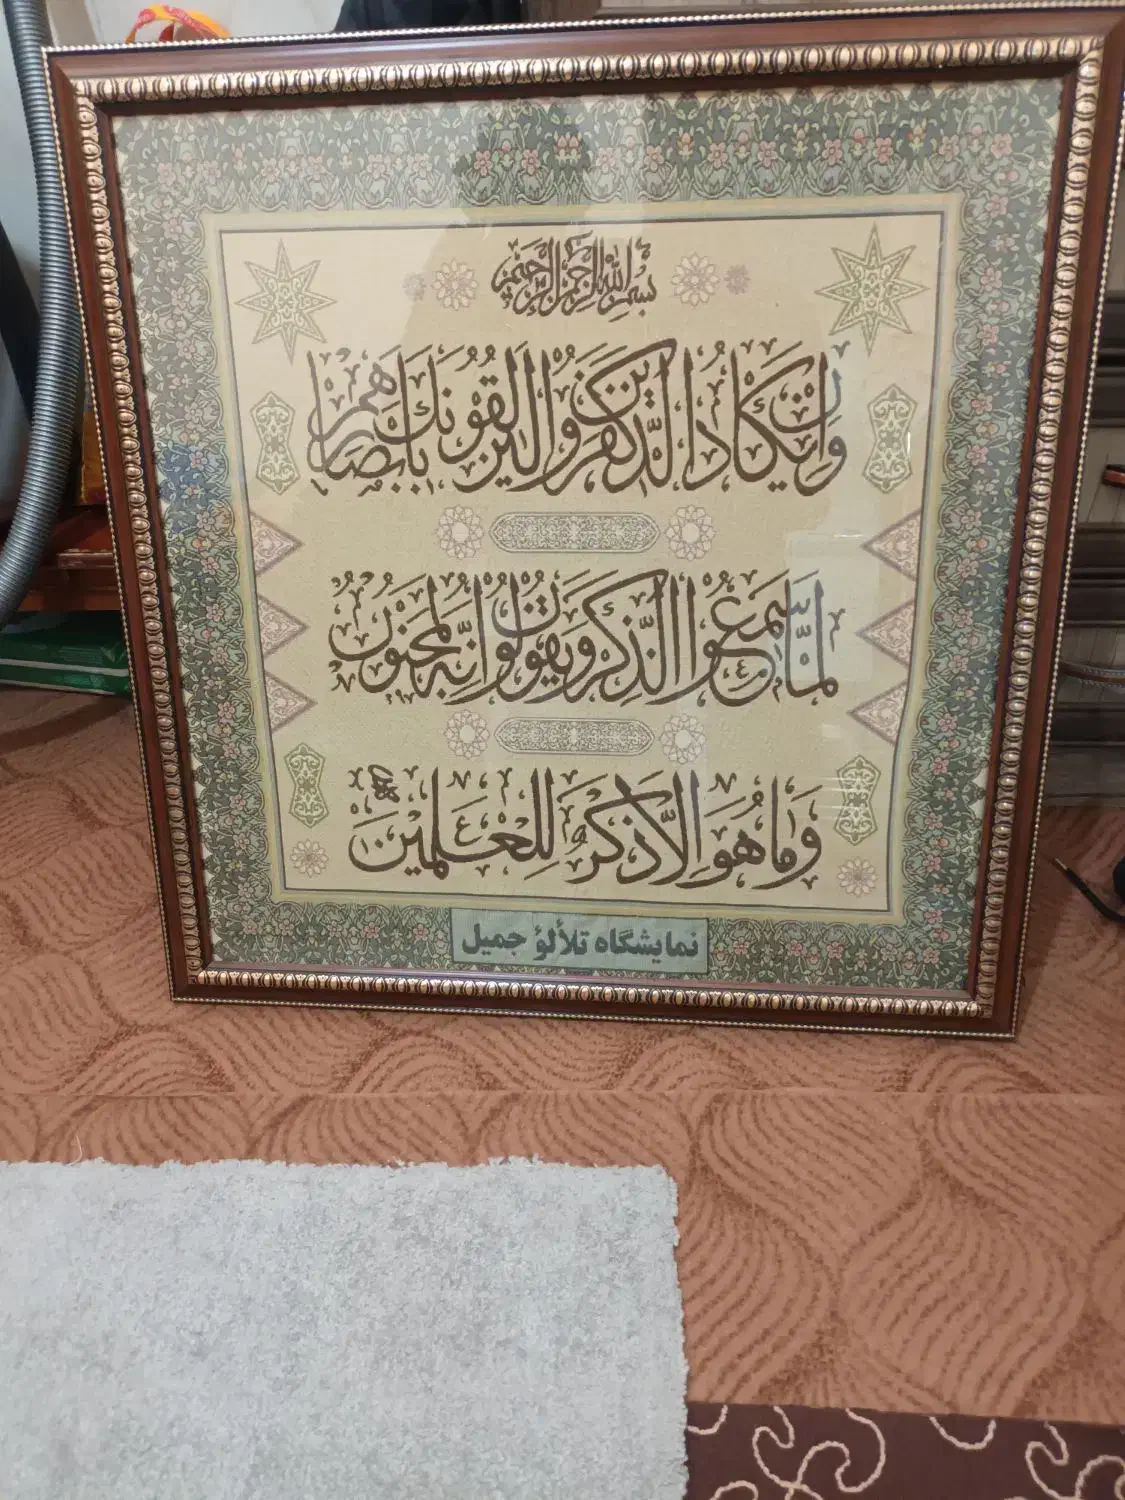 بسم الله الرحمن الرحيم
وَاِنْ يَكَادُ الَّذينَ كَفَرُوا لَيُزْلِقُونَكَ بِاَبْصَارِهِمْ
لَمَّا سَمِعُوا الذِّكْرَ وَيَقُولُونَ اِنَّهُ لَمَجْنُونٌ
وَمَا هُوَ اِلَّا ذِكْرٌ لِلْعٰلَمينَ
نمایشگاه تلألؤ جمیل